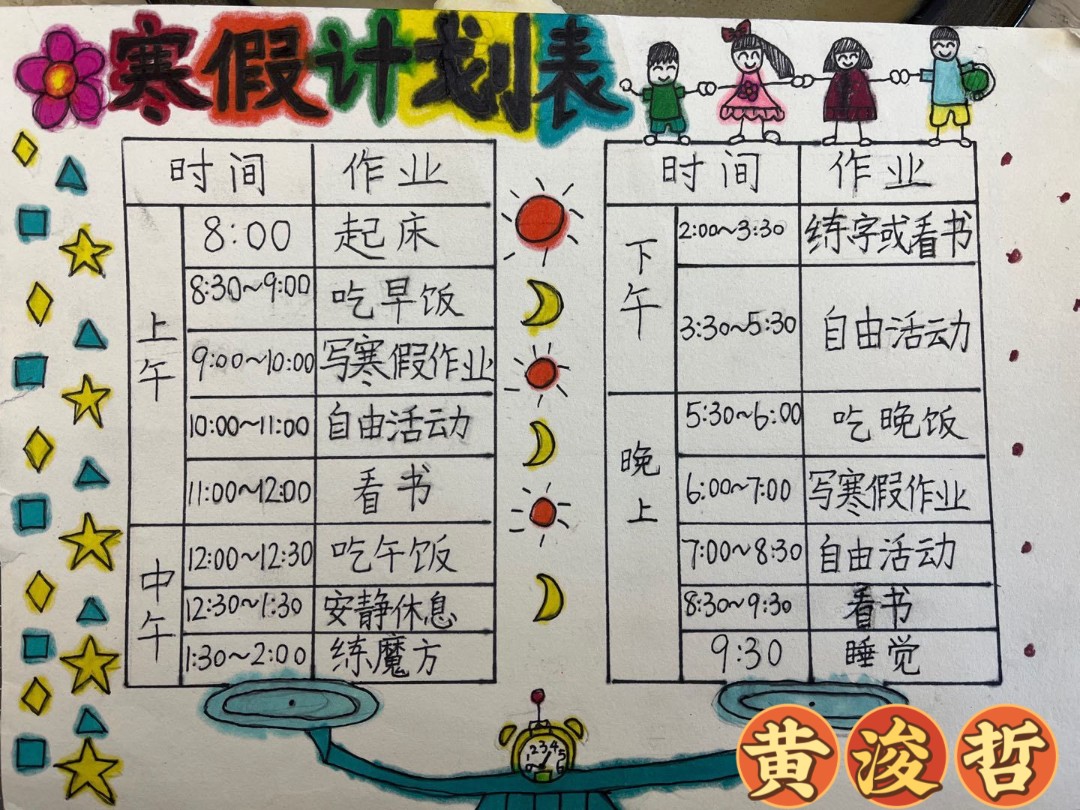 寒假计划表
时间 作业
上午
8:00 起床
8:30~9:00 吃早饭
9:00~10:00 写寒假作业
10:00~11:00 自由活动
11:00~12:00 看书
中午
12:00~12:30 吃午饭
12:30~1:30 安静休息
1:30~2:00 练魔方
时间 作业
下午
2:00~3:30 练字或看书
3:30~5:30 自由活动
晚上
5:30~6:00 吃晚饭
6:00~7:00 写寒假作业
7:00~8:30 自由活动
8:30~9:30 看书
9:30 睡觉
黄浚哲